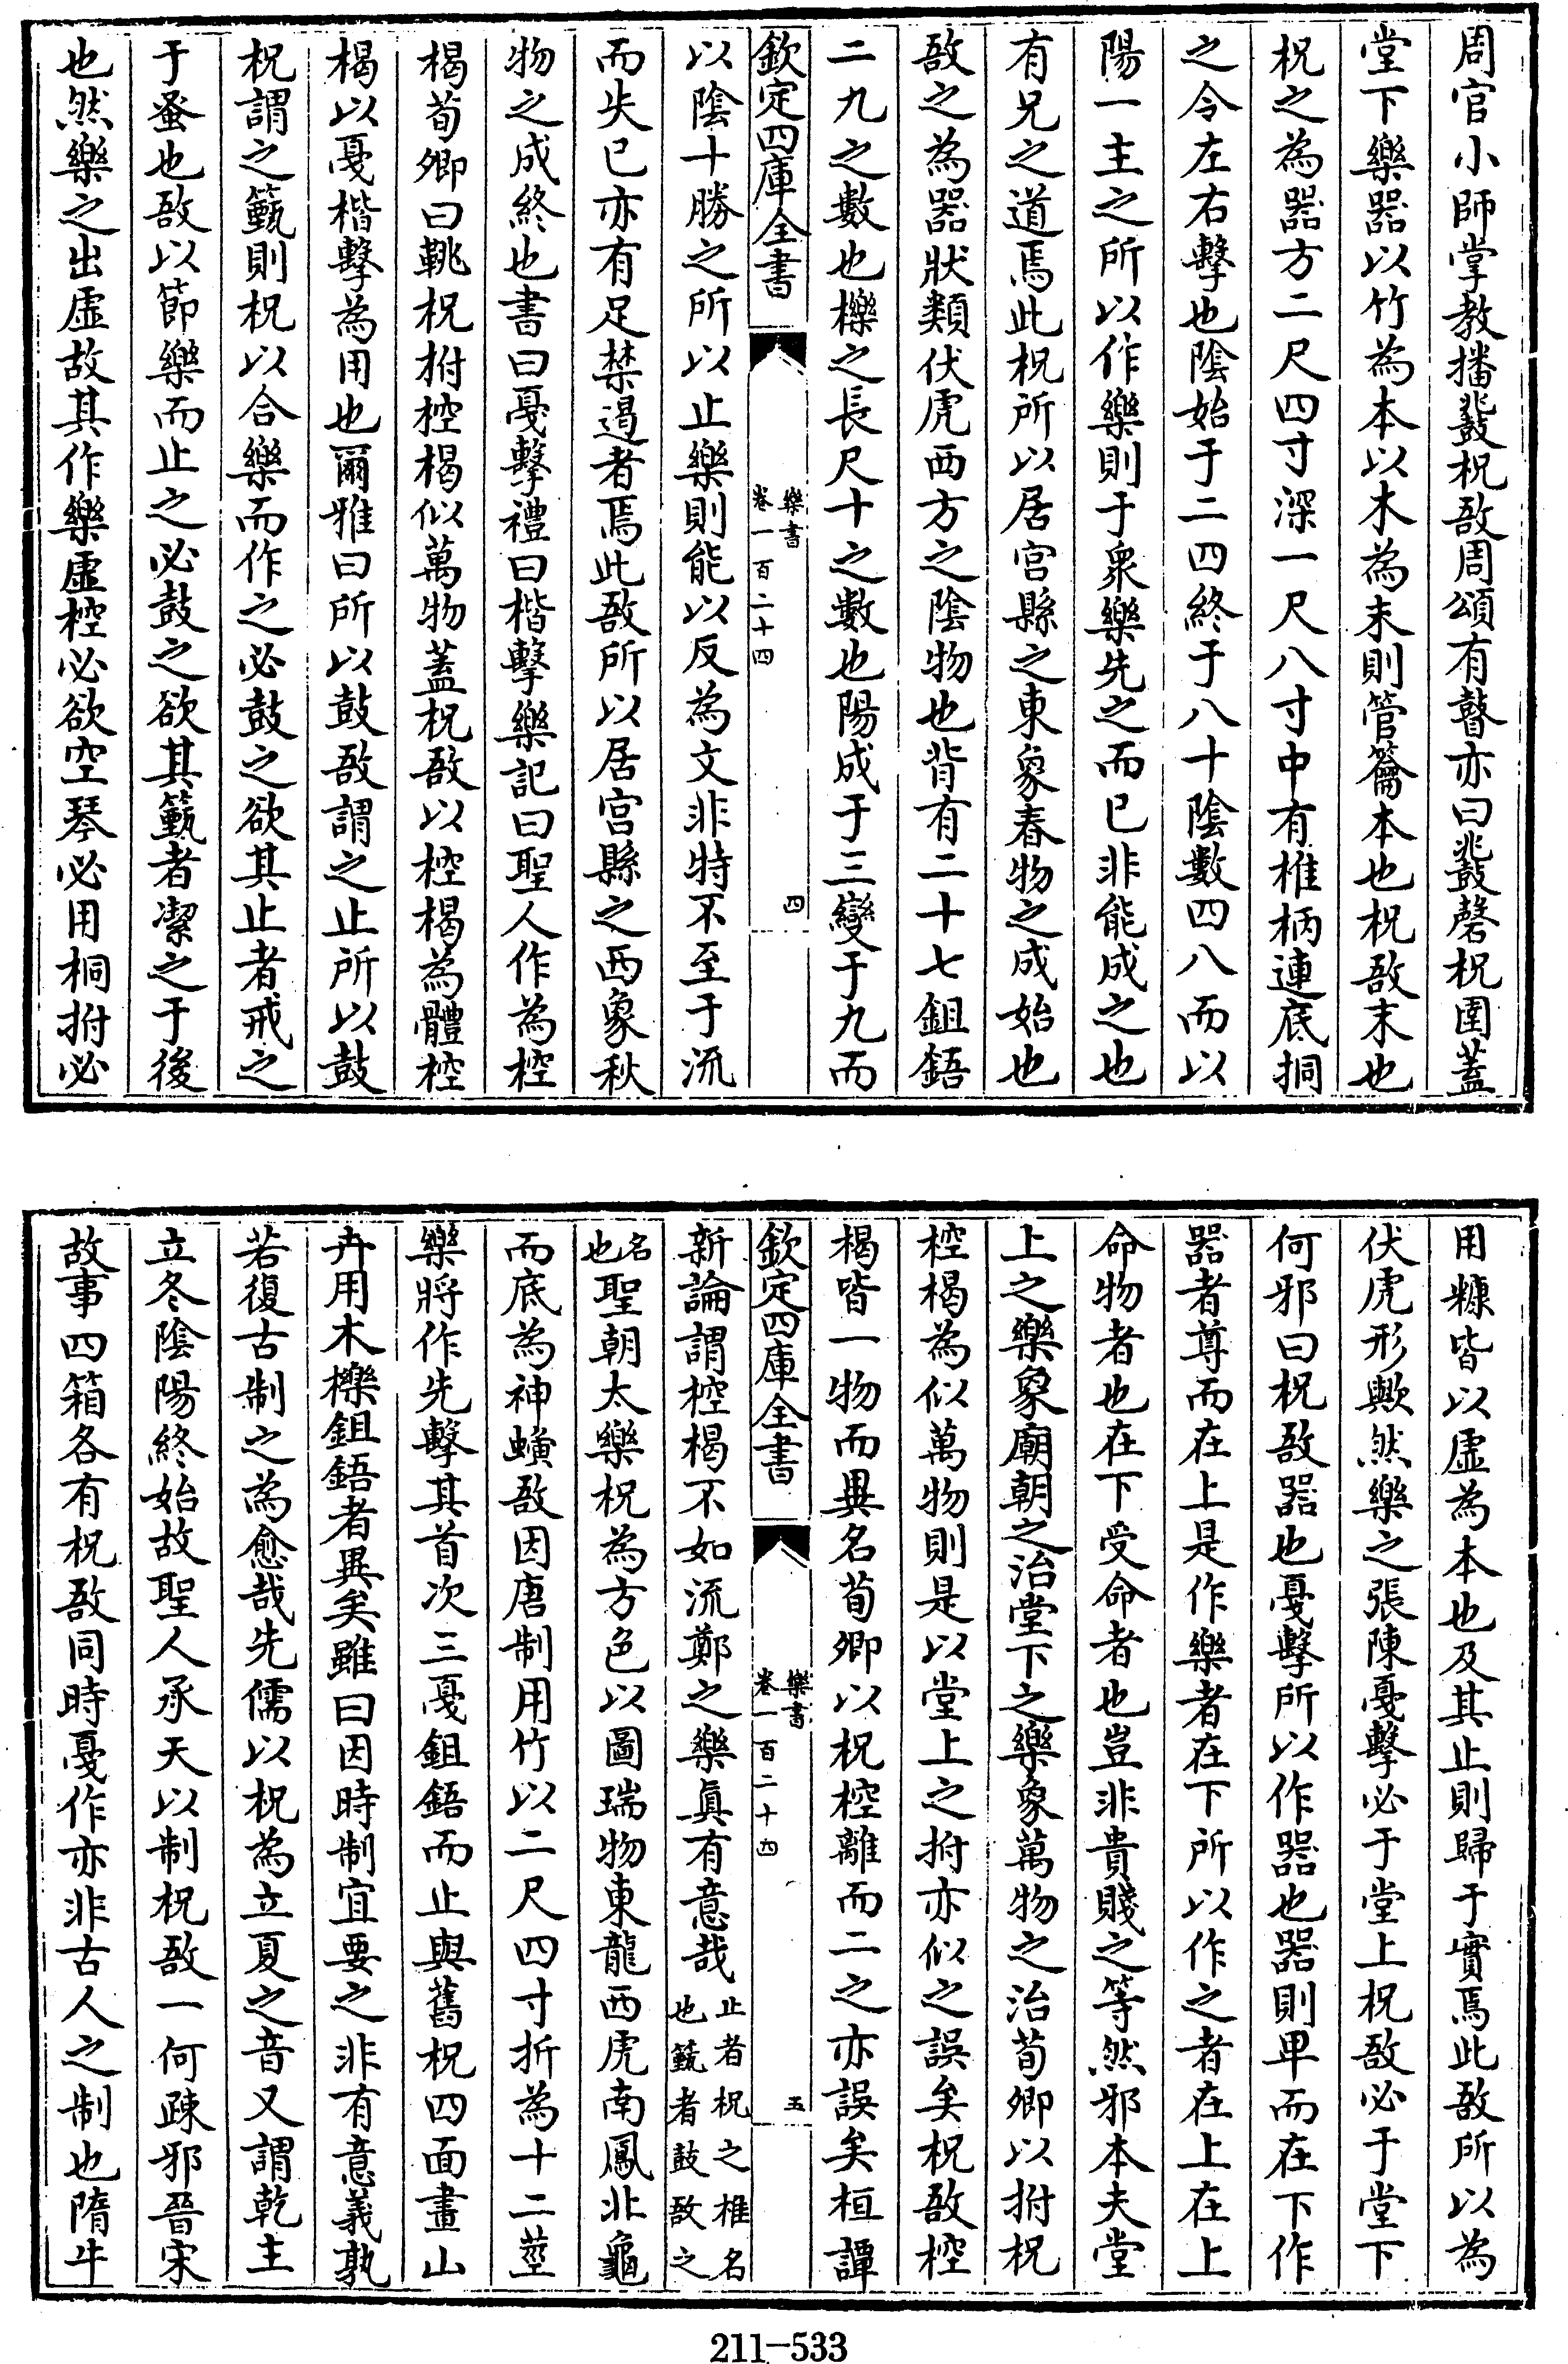 周官小師掌教播鼗柷敔周頌有瞽亦曰鼗磬柷圉蓋
堂下樂器以竹為本以木為末則管籥本也柷敔末也
柷之為器方二尺四寸深一尺八寸中有椎柄連底挏
之令左右擊也陰始于二四終于八十陰數四八而以
陽一主之所以作樂則于衆樂先之而已非能成之也
有兄之道焉此柷所以居宫縣之東象春物之成始也
敔之為器狀類伏虎西方之陰物也背有二十七鉏鋙
二九之數也櫟之長尺十之數也陽成于三變于九而
欽定四庫全書
樂書
卷一百二十四
四
以陰十勝之所以止樂則能以反為文非特不至于流
而失已亦有足禁遏者焉此敔所以居宫縣之西象秋
物之成終也書曰戛擊禮曰楷擊樂記曰聖人作為椌
楬荀卿曰鞉柷拊椌楬似萬物蓋柷敔以椌楬為體椌
楬以戛楷擊為用也爾雅曰所以鼓敔謂之止所以鼓
柷謂之籈則柷以合樂而作之必鼓之欲其止者戒之
于蚤也敔以節樂而止之必鼓之欲其籈者潔之于後
也然樂之出虛故其作樂虛椌必欲空琴必用桐拊必
用糠皆以虛為本也及其止則歸于實焉此敔所以為
伏虎形歟然樂之張陳戛擊必于堂上柷敔必于堂下
何邪曰柷敔器也戛擊所以作器也器則卑而在下作
器者尊而在上是作樂者在下所以作之者在上在上
命物者也在下受命者也豈非貴賤之等然邪本夫堂
上之樂象廟朝之治堂下之樂象萬物之治荀卿以拊柷
椌楬為似萬物則是以堂上之拊亦似之誤矣柷敔椌
楬皆一物而異名荀卿以柷椌離而二之亦誤矣桓譚
欽定四庫全書
樂書
卷一百二十四
五
新論謂椌楬不如流鄭之樂真有意哉止者柷之椎名也籈者鼓敔之
名也聖朝太樂柷為方色以圖瑞物東龍西虎南鳳北龜
而底為神螾敔因唐制用竹以二尺四寸折為十二莖
樂將作先擊其首次三戛鉏鋙而止與舊柷四面畫山
卉用木櫟鉏鋙者異矣雖曰因時制宜要之非有意義孰
若復古制之為愈哉先儒以柷為立夏之音又謂乾主
立冬陰陽終始故聖人承天以制柷敔一何疎邪晉宋
故事四箱各有柷敔同時戛作亦非古人之制也隋牛
211-533